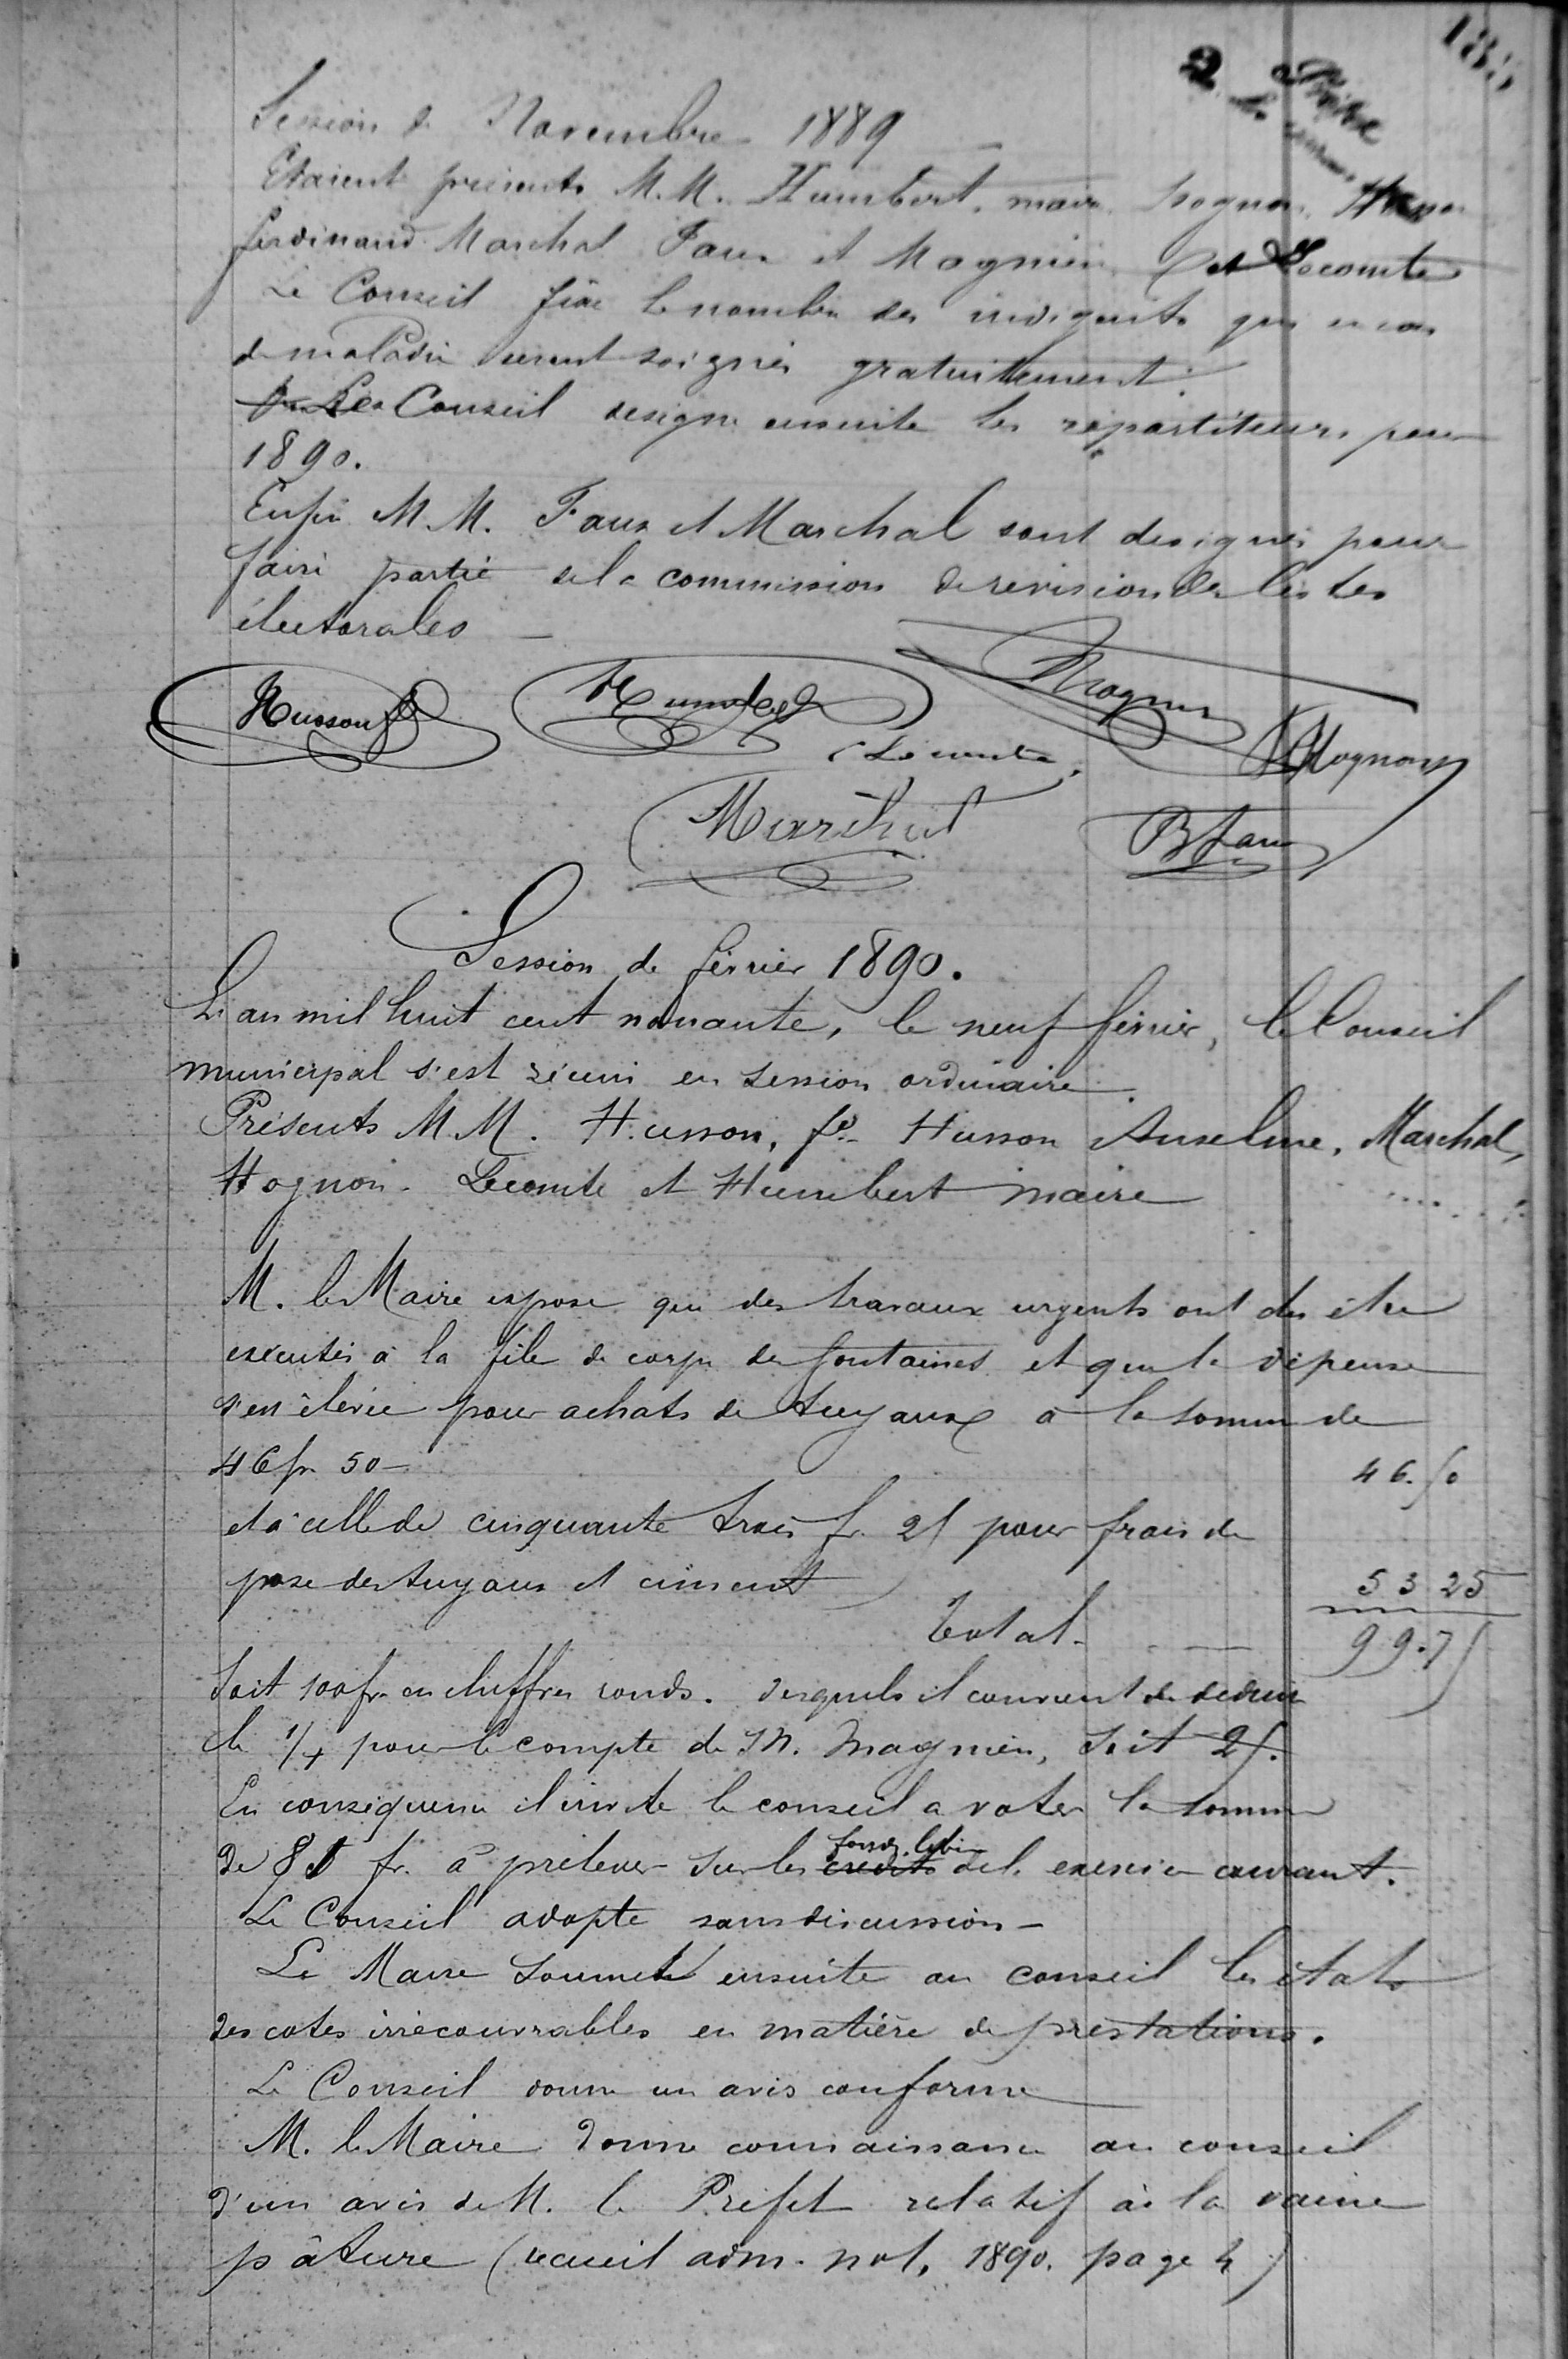 Session de Novembre 1889
Etaient présents M.M. Humbert, maire, Hognon, Husson
ferdinand Marchal Faux et Magnien et Lecomte
Le Conseil fixe le nombre des indigents qui en cas
de maladie seront soignés gratuitement.
Le Conseil designe ensuite les répartiteurs pour
1890.
Enfin M.M. Faux et Marchal sont designés pour
faire partie de la commission de revision des listes
électorales
Husson f Humbert Hognon
Lecomte
Marchal B Faux
Session de février 1890.
L'an mil huit cent nonante, le neuf février, le Conseil
municipal s'est réuni en session ordinaire.
Présents M.M. Husson, fd Husson Anselme, Marchal,
Hognon. Lecomte et Humbert maire
M. le Maire expose que des travaux urgents ont du être
executés à la file de corps de fontaines et que la dépense
s'en élevée pour achats de tuyaux à la somme de
46 fr 50 46.50
et à celle de cinquante trois fr. 25 pour frais de
pose des tuyaux et ciment 53 25
Total. 99.75
Soit 100 fr. en chiffres ronds. desquels il convient de deduire
le 1/4 pour le compte de M. Magnien, soit 25.
En conséquence il invite le conseil a voter la somme
de fr. à prélever sur les fonds libres credits de l'exercice courant.
Le Conseil adopte sans discussion -
Le Maire soumet ensuite au conseil les états
des cotes irrécouvrables en matière de prestations.
Le Conseil donne un avis conforme
M. le Maire donne connaissance au conseil
d'un avis de M. le Préfet relatif à la vaine
pâture (recueil adm. not. 1890. page 4)